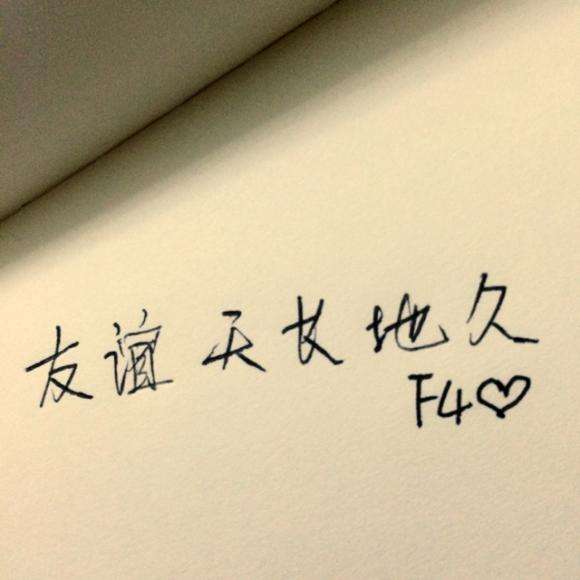 友谊天长地久
F4♡